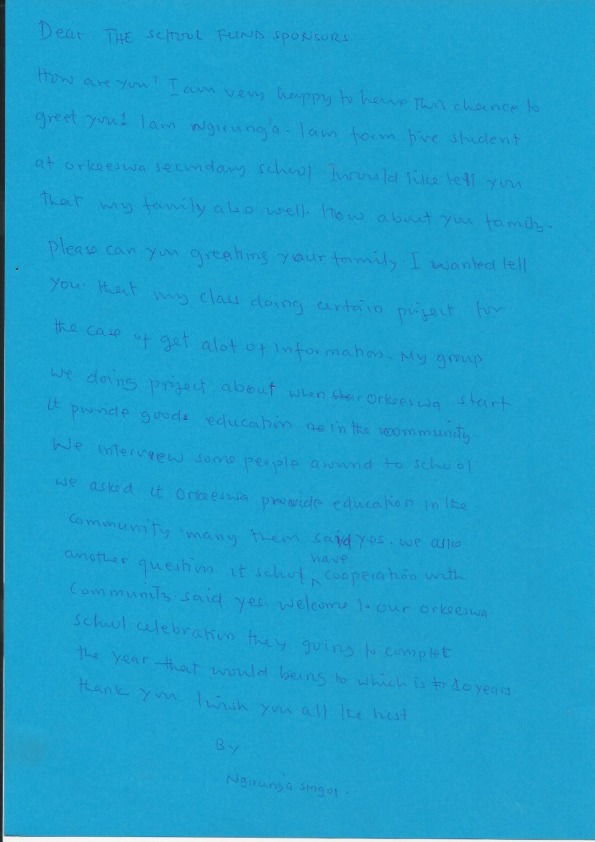 Dear THE SCHOOL FUND SPONSORS
How are you! I am very happy to have This chance to
greet you! I am Ngirung'a. I am form five student
at orkeeswa secondary school I would like tell you
that my family also well. How about you family.
Please can you greating your family. I wanted tell
you that my class doing certain project for
the case of get alot of information. My group
we doing project about when Orkeeswa start
it provide goods education in the community
We interview some people around to school
we asked it Orkeeswa provide education in the
community many them said yes. we also
another question it school have cooperation with
Community said yes. Welcome to our orkeeswa
school celebration they going to complet
the year that would being to which is 10 years
thank you I wish you all the best
By
Ngirung'a